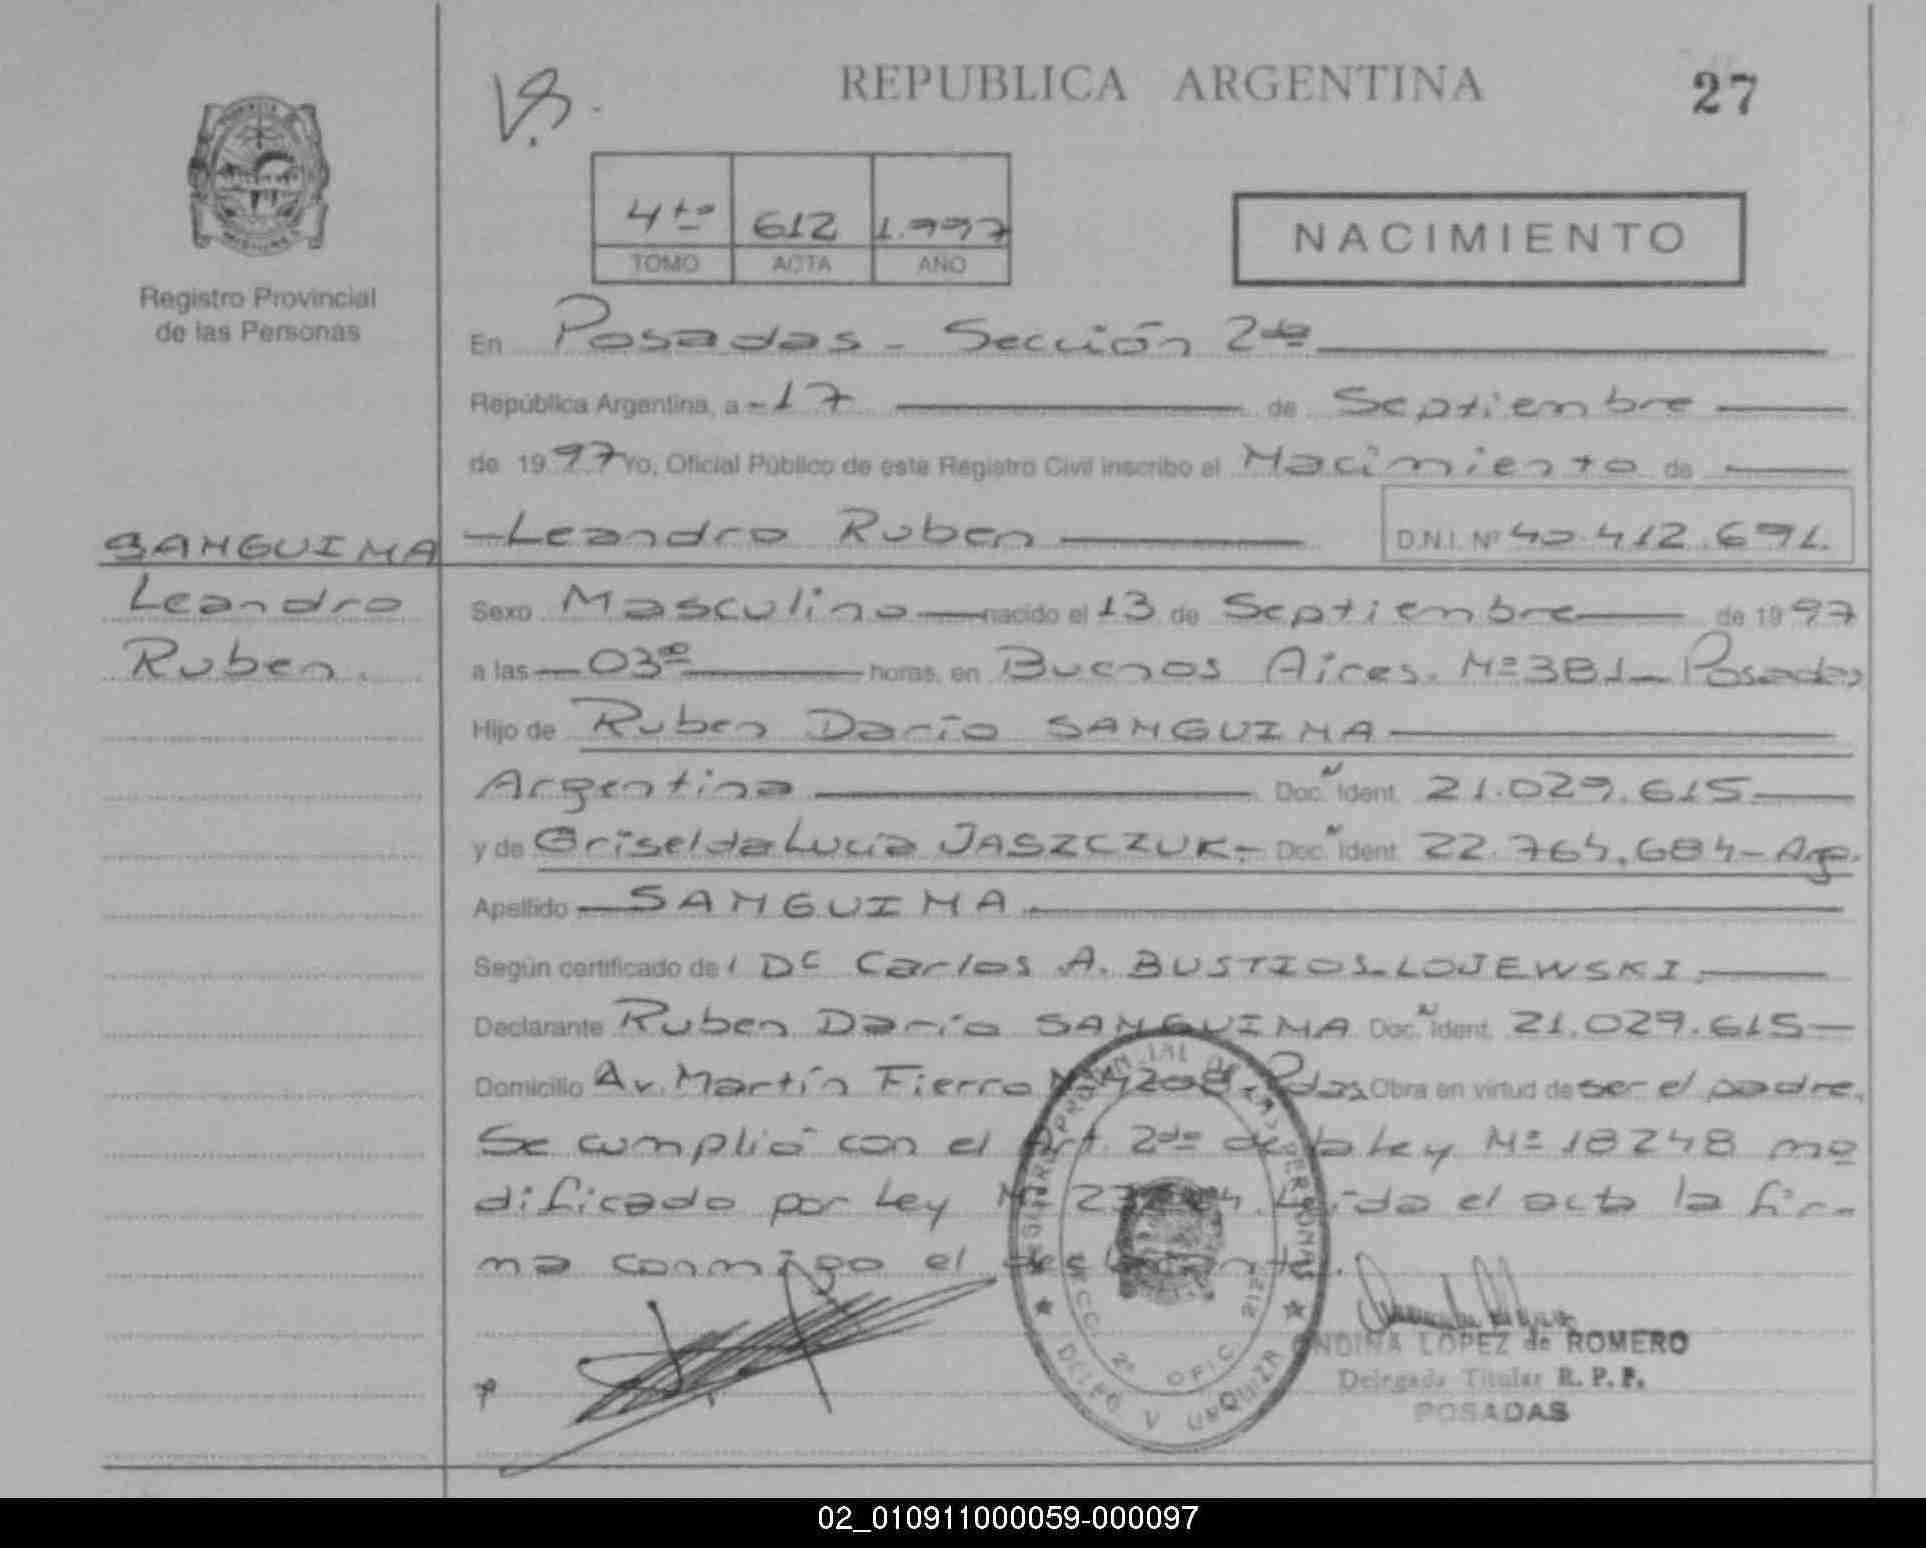 REPUBLICA ARGENTINA
27
V.B.
4to 612 1.997
TOMO ACTA AÑO
NACIMIENTO
Registro Provincial
de las Personas
En Posadas - Sección 2da
República Argentina, a - 17 de Septiembre
de 1997 Yo, Oficial Público de este Registro Civil inscribo el Nacimiento de
SANGUINA
Leandro
Ruben.
- Leandro Ruben D.N.I. Nº 40.412.691.
Sexo Masculino nacido el 13 de Septiembre de 1997
a las 03 horas, en Buenos Aires. Nº 381 - Posadas
Hijo de Ruben Darío SANGUINA
Argentina Doc. Ident. 21.029.615
y de Griselda Lucia JASZCZUK - Doc. Ident. 22.764.684 - Arg.
Apellido SANGUINA
Según certificado del Dr Carlos A. BUSTIOS LOJEWSKI.
Declarante Ruben Darío SANGUINA Doc. Ident. 21.029.615
Domicilio Av. Martín Fierro Nº 4208 - Pdas Obra en virtud de ser el padre.
Se cumplió con el Art. 2do de la Ley Nº 18248 mo
dificado por Ley Nº Leída el acta la fir-
ma conmigo el declarante.
REGISTRO PROVINCIAL DE LAS PERSONAS
SECC. 2ª OFIC. 212
DELEG V URQUIZA
ONDINA LOPEZ de ROMERO
Delegada Titular R. P. P.
POSADAS
02_010911000059-000097